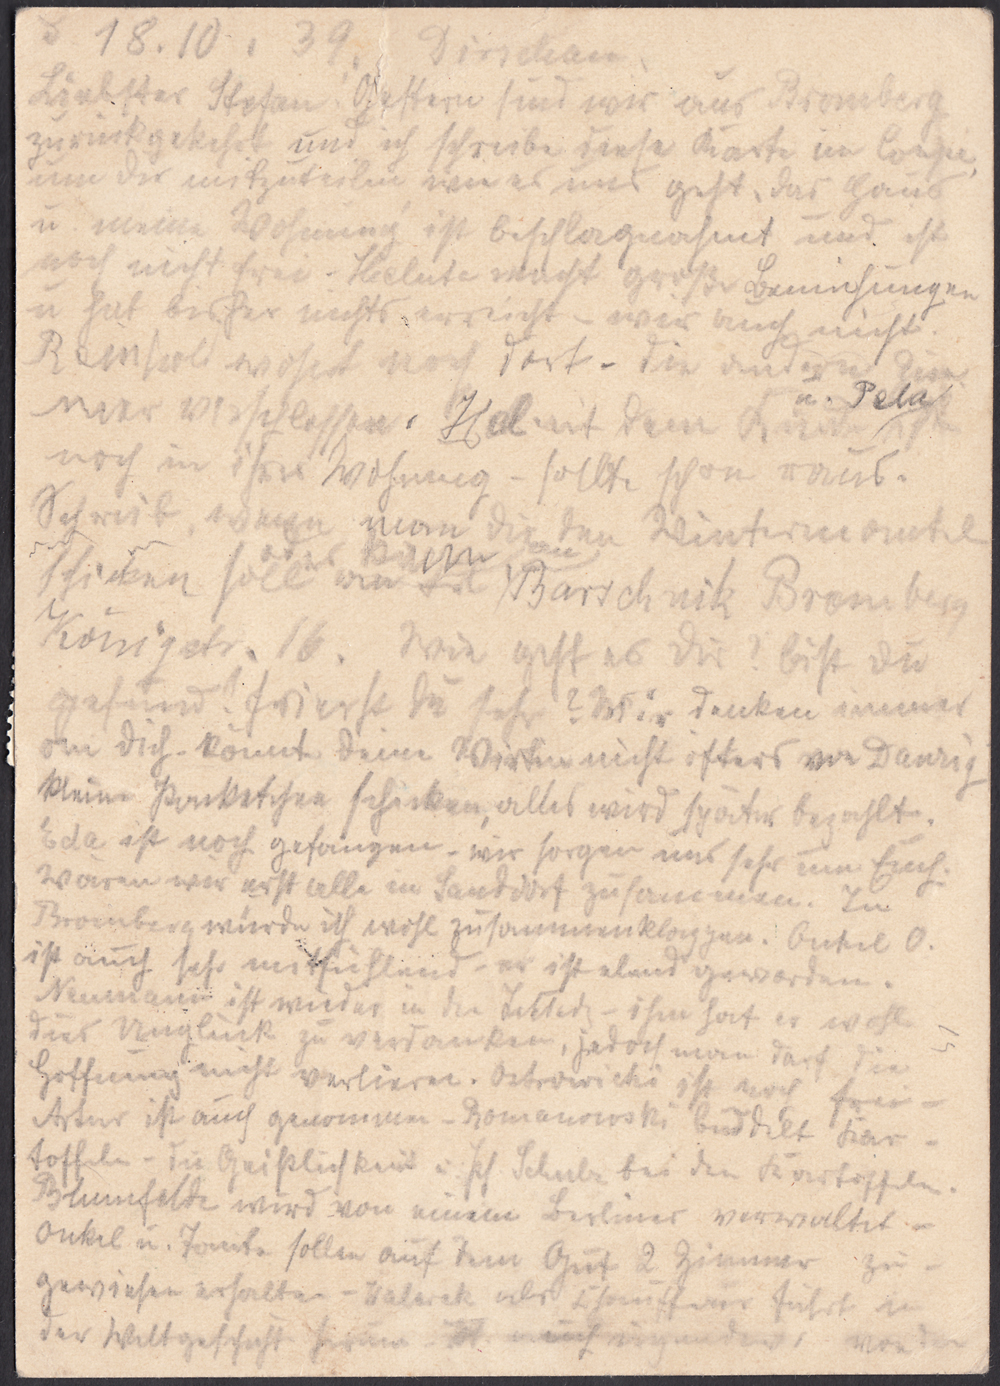 18.10.39. Dirschau.
Liebster Stefan! Gestern sind wir aus Bromberg
zurückgekehrt und ich schreibe diese Karte im Coupé,
um dir mitzuteilen, wie es uns geht. das Haus
u. meine Wohnung ist beschlagnahmt und ist
noch nicht frei - macht große Bemühungen
u hat bisher nichts erreicht - wir auch nicht.
wohnt noch dort - die andern Zim-
mer verschlossen. mit dem u. Pela
noch in ihrer Wohnung - sollte schon raus.
Schreib, wenn man dir den Wintermantel
schicken soll oder an Barschnik Bromberg
Königstr. 16. Wie geht es Dir? bist du
gesund? frierst du sehr? Wir denken immer
an dich - könnte deine Wirtin nicht öfters von Danzig
kleine Paketchen schicken, alles wird später bezahlt.
Eda ist noch gefangen - wir sorgen uns sehr um Euch.
wären wir erst alle in Sanddorf zusammen. In
Bromberg würde ich wohl zusammenklappen. Onkel O.
ist auch sehr mitfühlend - er ist elend geworden.
Neumann ist wieder in der - ihm hat er wohl
dies Unglück zu verdanken, jedoch man darf die
Hoffnung nicht verlieren. Ostrowicki ist noch frei -
Artur ist auch genommen - Romanowski buddelt Kar-
toffeln - die Geistlichkeit u. Schule bei den Kartoffeln.
Blumfelde wird von einem Berliner verwaltet -
Onkel u. Tante sollen auf dem Gut 2 Zimmer zu-
gewiesen erhalten - als Chauffeur fährt in
der Weltgeschicht herum von der